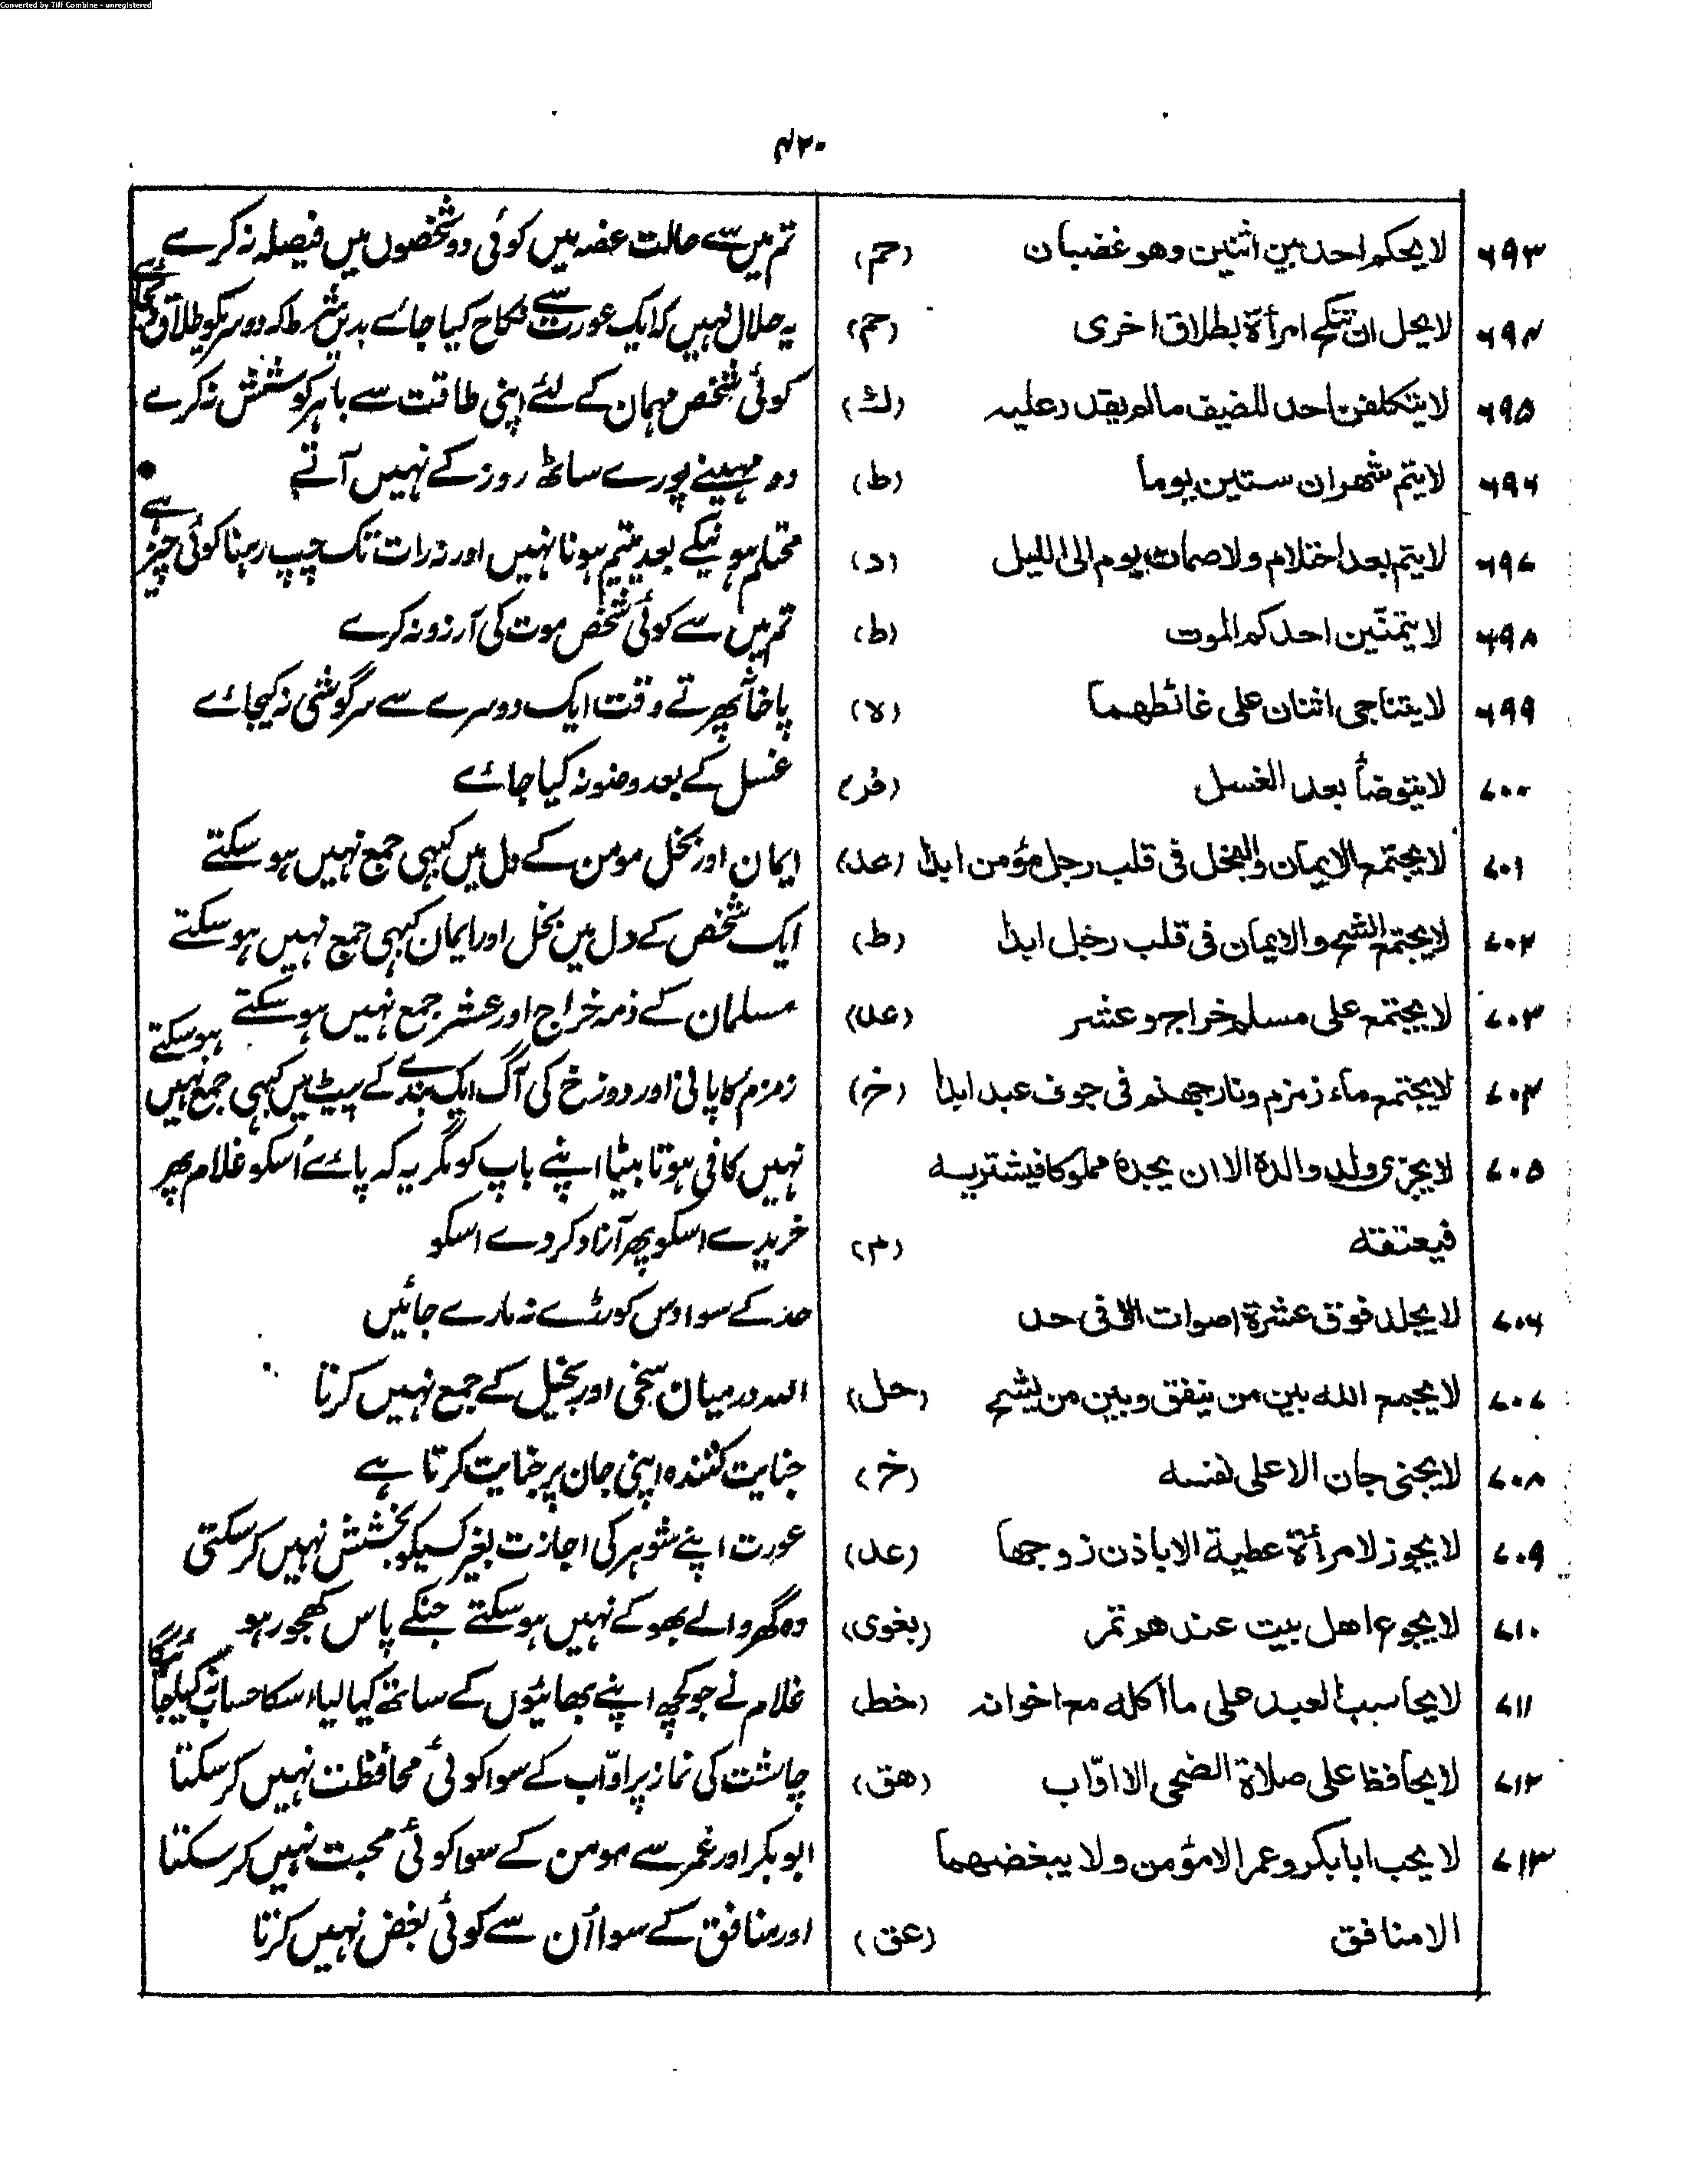 Converted by Tiff Combine - unregistered
۴۲۰
۶۹۳ لا یحکم احد بین اثنین وھو غضبان (حم) تم میں سے حالت غصہ میں کوئی دو شخصوں میں فیصلہ نہ کرے
۶۹۴ لا یحل ان تنکح امرأة بطلاق اخری (حم) یہ حلال نہیں کہ ایک عورت سے نکاح کیا جائے بدیں شرط کہ دوسریکو طلاق
۶۹۵ لا یتکلفن احد للضیف مالم یقدر علیہ (ك) کوئی شخص مہمان کے لئے اپنی طاقت سے باہر کوشش نہ کرے
۶۹۶ لا یتم شھران ستین یوما (ط) دو مہینے پورے ساٹھ روز کے نہیں آتے
۶۹۷ لا یتم بعد احتلام ولا صمات یوم الی اللیل (د) محتلم ہونیکے بعد یتیم ہونا نہیں اور نہ رات تک چپ رہنا کوئی چیز ہے
۶۹۸ لا یتمنّین احدکم الموت (ط) تم میں سے کوئی شخص موت کی آرزو نہ کرے
۶۹۹ لا یتناجی اثنان علی غائطھما (ہ) پاخانہ پھرتے وقت ایک دوسرے سے سرگوشی نہ کیجائے
۷۰۰ لا یتوضأ بعد الغسل (فر) غسل کے بعد وضو نہ کیا جائے
۷۰۱ لا یجتمع الایمان والبخل فی قلب رجل مؤمن ابدا (عد) ایمان اور بخل مومن کے دل میں کبہی جمع نہیں ہو سکتے
۷۰۲ لا یجتمع الشح والایمان فی قلب رجل ابدا (ط) ایک شخص کے دل میں بخل اور ایمان کبہی جمع نہیں ہو سکتے
۷۰۳ لا یجتمع علی مسلم خراج وعشر (عد) مسلمان کے ذمہ خراج اور عشر جمع نہیں ہو سکتے
۷۰۴ لا یجتمع ماء زمزم ونار جھنم فی جوف عبد ابدا (خ) زمزم کا پانی اور دوزخ کی آگ ایک بندے کے پیٹ میں کبہی جمع نہیں ہو سکتے
۷۰۵ لا یجزی ولد والدہ الا ان یجدہ مملوکا فیشتریہ نہیں کافی ہوتا بیٹا اپنے باپ کو مگر یہ کہ پائے اُسکو غلام پھر
فیعتقہ (م) خریدے اسکو پھر آزاد کر دے اسکو
۷۰۶ لا یجلد فوق عشرة اصوات الا فی حد حد کے سوا دس کوڑے نہ مارے جائیں
۷۰۷ لا یجمع اللہ بین من ینفق وبین من یشح (حل) اللہ درمیان سخی اور بخیل کے جمع نہیں کرتا
۷۰۸ لا یجنی جان الا علی نفسہ (خ) جنایت کنندہ اپنی جان پر جنایت کرتا ہے
۷۰۹ لا یجوز لامرأة عطیة الا باذن زوجھا (عد) عورت اپنے شوہر کی اجازت بغیر کسیکو بخشش نہیں کر سکتی
۷۱۰ لا یجوع اھل بیت عندھم تمر (بغوی) وہ گھر والے بھوکے نہیں ہو سکتے جنکے پاس کھجور ہو
۷۱۱ لا یحاسب العبد علی ما اکلہ مع اخوانہ (خط) غلام نے جو کچھ اپنے بھائیوں کے ساتھ کہا لیا، اسکا حساب نہ کیا جائیگا
۷۱۲ لا یحافظ علی صلاة الضحی الا اوّاب (ھق) چاشت کی نماز پر اوّاب کے سوا کوئی محافظت نہیں کر سکتا
۷۱۳ لا یحب ابابکر وعمر الا مؤمن ولا یبغضھما ابوبکر اور عمر سے مومن کے سوا کوئی محبت نہیں کر سکتا
الا منافق (عق) اور منافق کے سوا اُن سے کوئی بغض نہیں کرتا